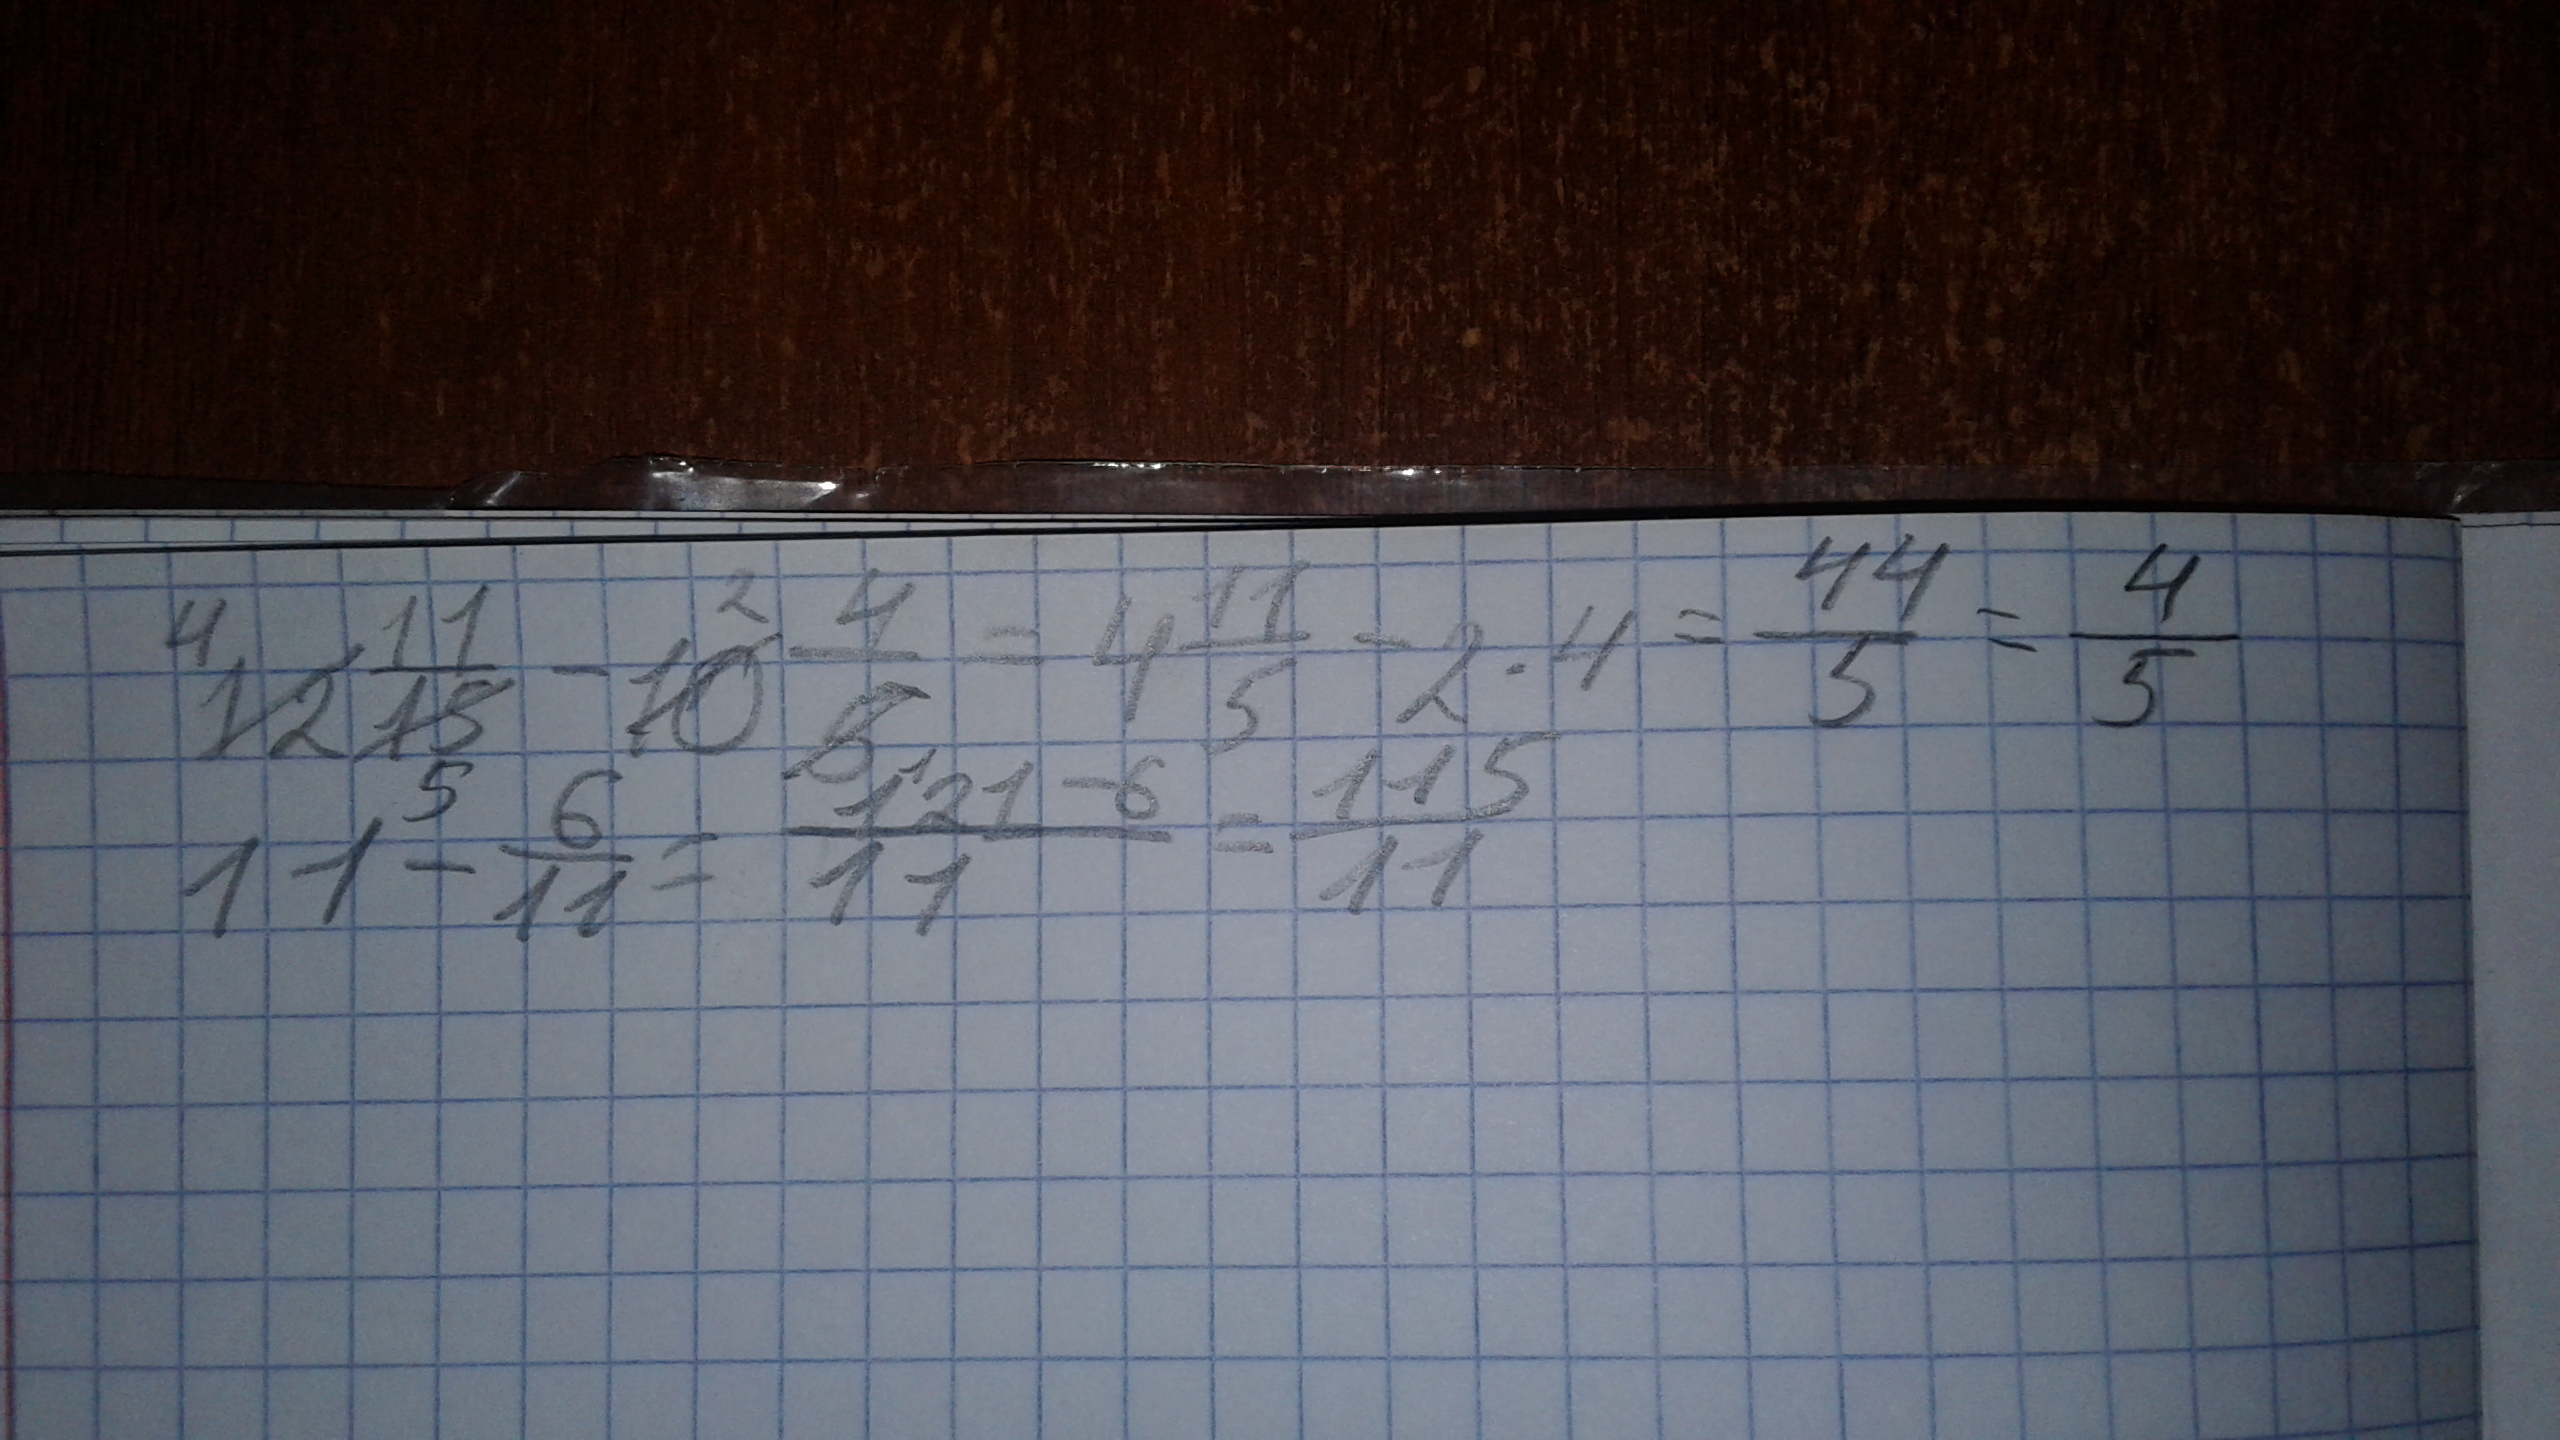 4 12 11/15 - 10 2 4/5 1 = 4 11/5 - 2 · 4 = 44/5 = 4/5
11 5 - 6/11 = 121-6/11 = 115/11